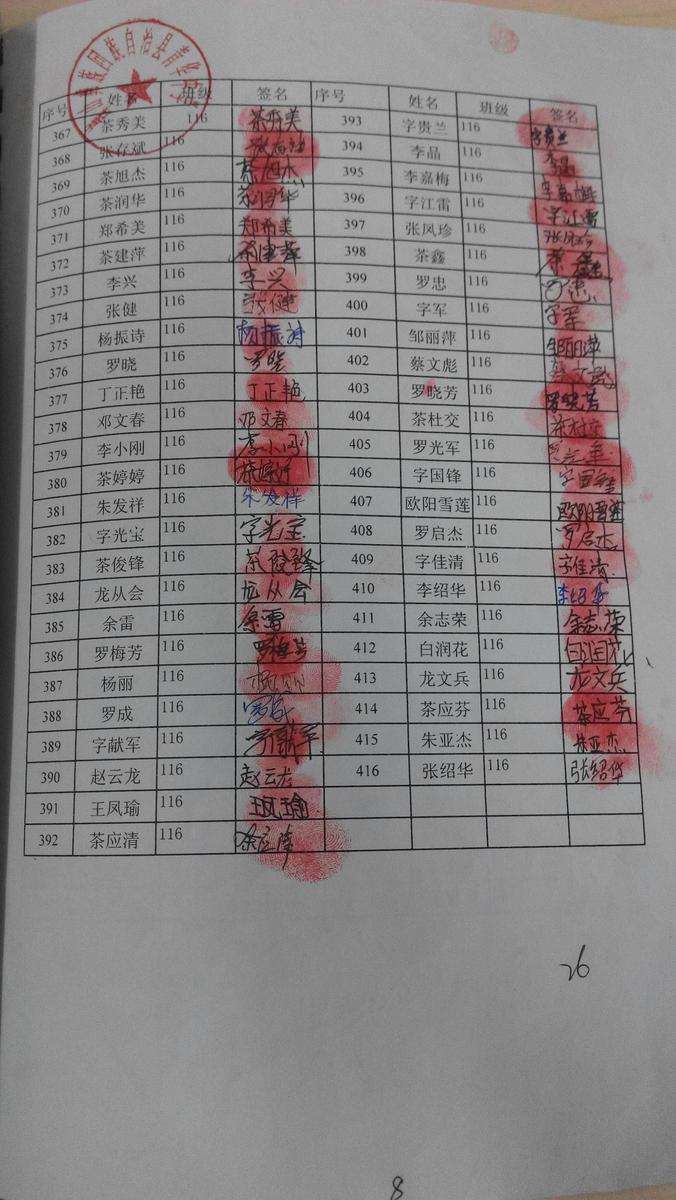 族回族自治县
序号 姓名 班级 签名 序号 姓名 班级 签名
367 茶秀美 116 茶秀美 393 字贵兰 116 字贵兰
368 张存斌 116 394 李晶 116 李晶
369 茶旭杰 116 茶旭杰 395 李嘉梅 116 李嘉梅
370 茶润华 116 茶润华 396 字江雷 116 字江雷
371 郑希美 116 郑希美 397 张凤珍 116 张凤珍
372 茶建萍 116 茶建萍 398 茶鑫 116 茶鑫
373 李兴 116 李兴 399 罗忠 116 罗忠
374 张健 116 张健 400 字军 116 字军
375 杨振诗 116 杨振诗 401 邹丽萍 116 邹丽萍
376 罗晓 116 罗晓 402 蔡文彪 116 蔡文彪
377 丁正艳 116 丁正艳 403 罗晓芳 116 罗晓芳
378 邓文春 116 邓文春 404 茶杜交 116 茶杜交
379 李小刚 116 李小刚 405 罗光军 116 罗光军
380 茶婷婷 116 茶婷婷 406 字国锋 116 字国锋
381 朱发祥 116 朱发祥 407 欧阳雪莲 116 欧阳雪莲
382 字光宝 116 字光宝 408 罗启杰 116 罗启杰
383 茶俊锋 116 茶俊锋 409 字佳清 116 字佳清
384 龙从会 116 龙从会 410 李绍华 116 李绍华
385 余雷 116 余雷 411 余志荣 116 余志荣
386 罗梅芳 116 罗梅芳 412 白润花 116 白润花
387 杨丽 116 杨丽 413 龙文兵 116 龙文兵
388 罗成 116 罗成 414 茶应芬 116 茶应芬
389 字献军 116 字献军 415 朱亚杰 116 朱亚杰
390 赵云龙 116 赵云龙 416 张绍华 116 张绍华
391 王凤瑜 116 王凤瑜
392 茶应清 116 茶应清
26
8